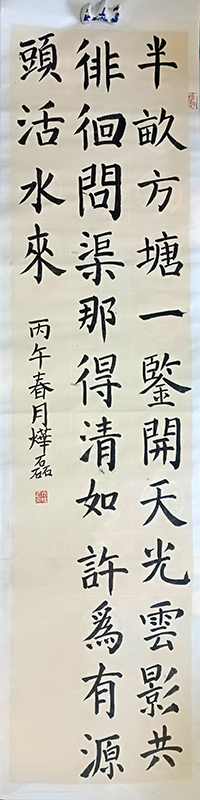 半畝方塘一鑒開天光雲影共
徘徊問渠那得清如許爲有源
頭活水來
丙午春月燁磊